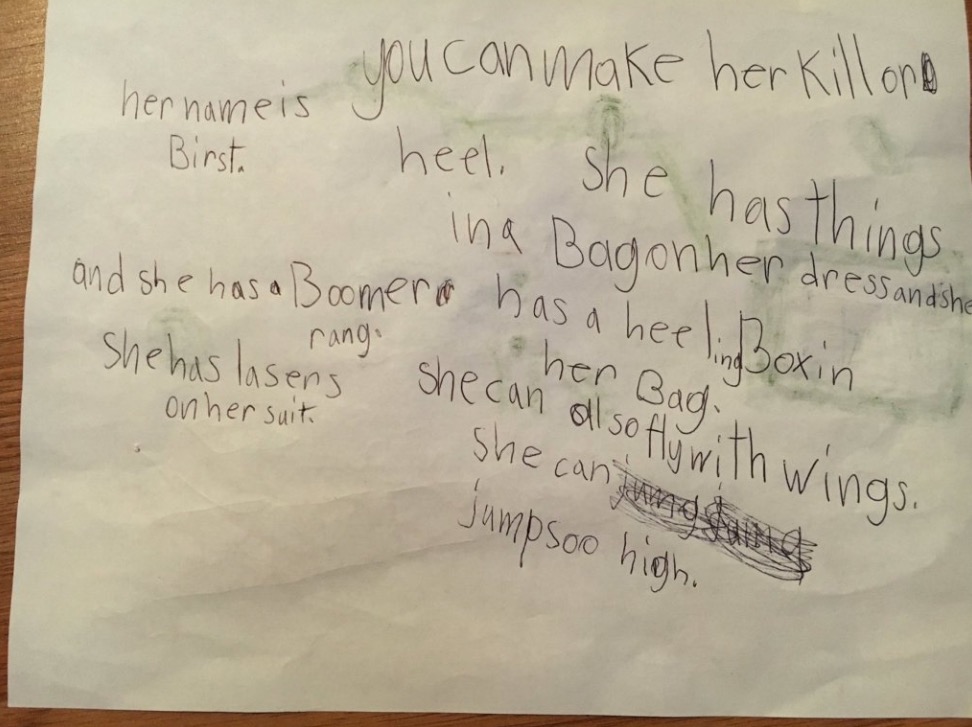 her name is
Birst.
and she has a Boomer
rang.
She has lasers
on her suit.
you can make her kill or
heel. She has things
in a Bag on her dress and she
has a heeling Box in
her Bag.
she can also fly with wings.
She can
jump soo high.